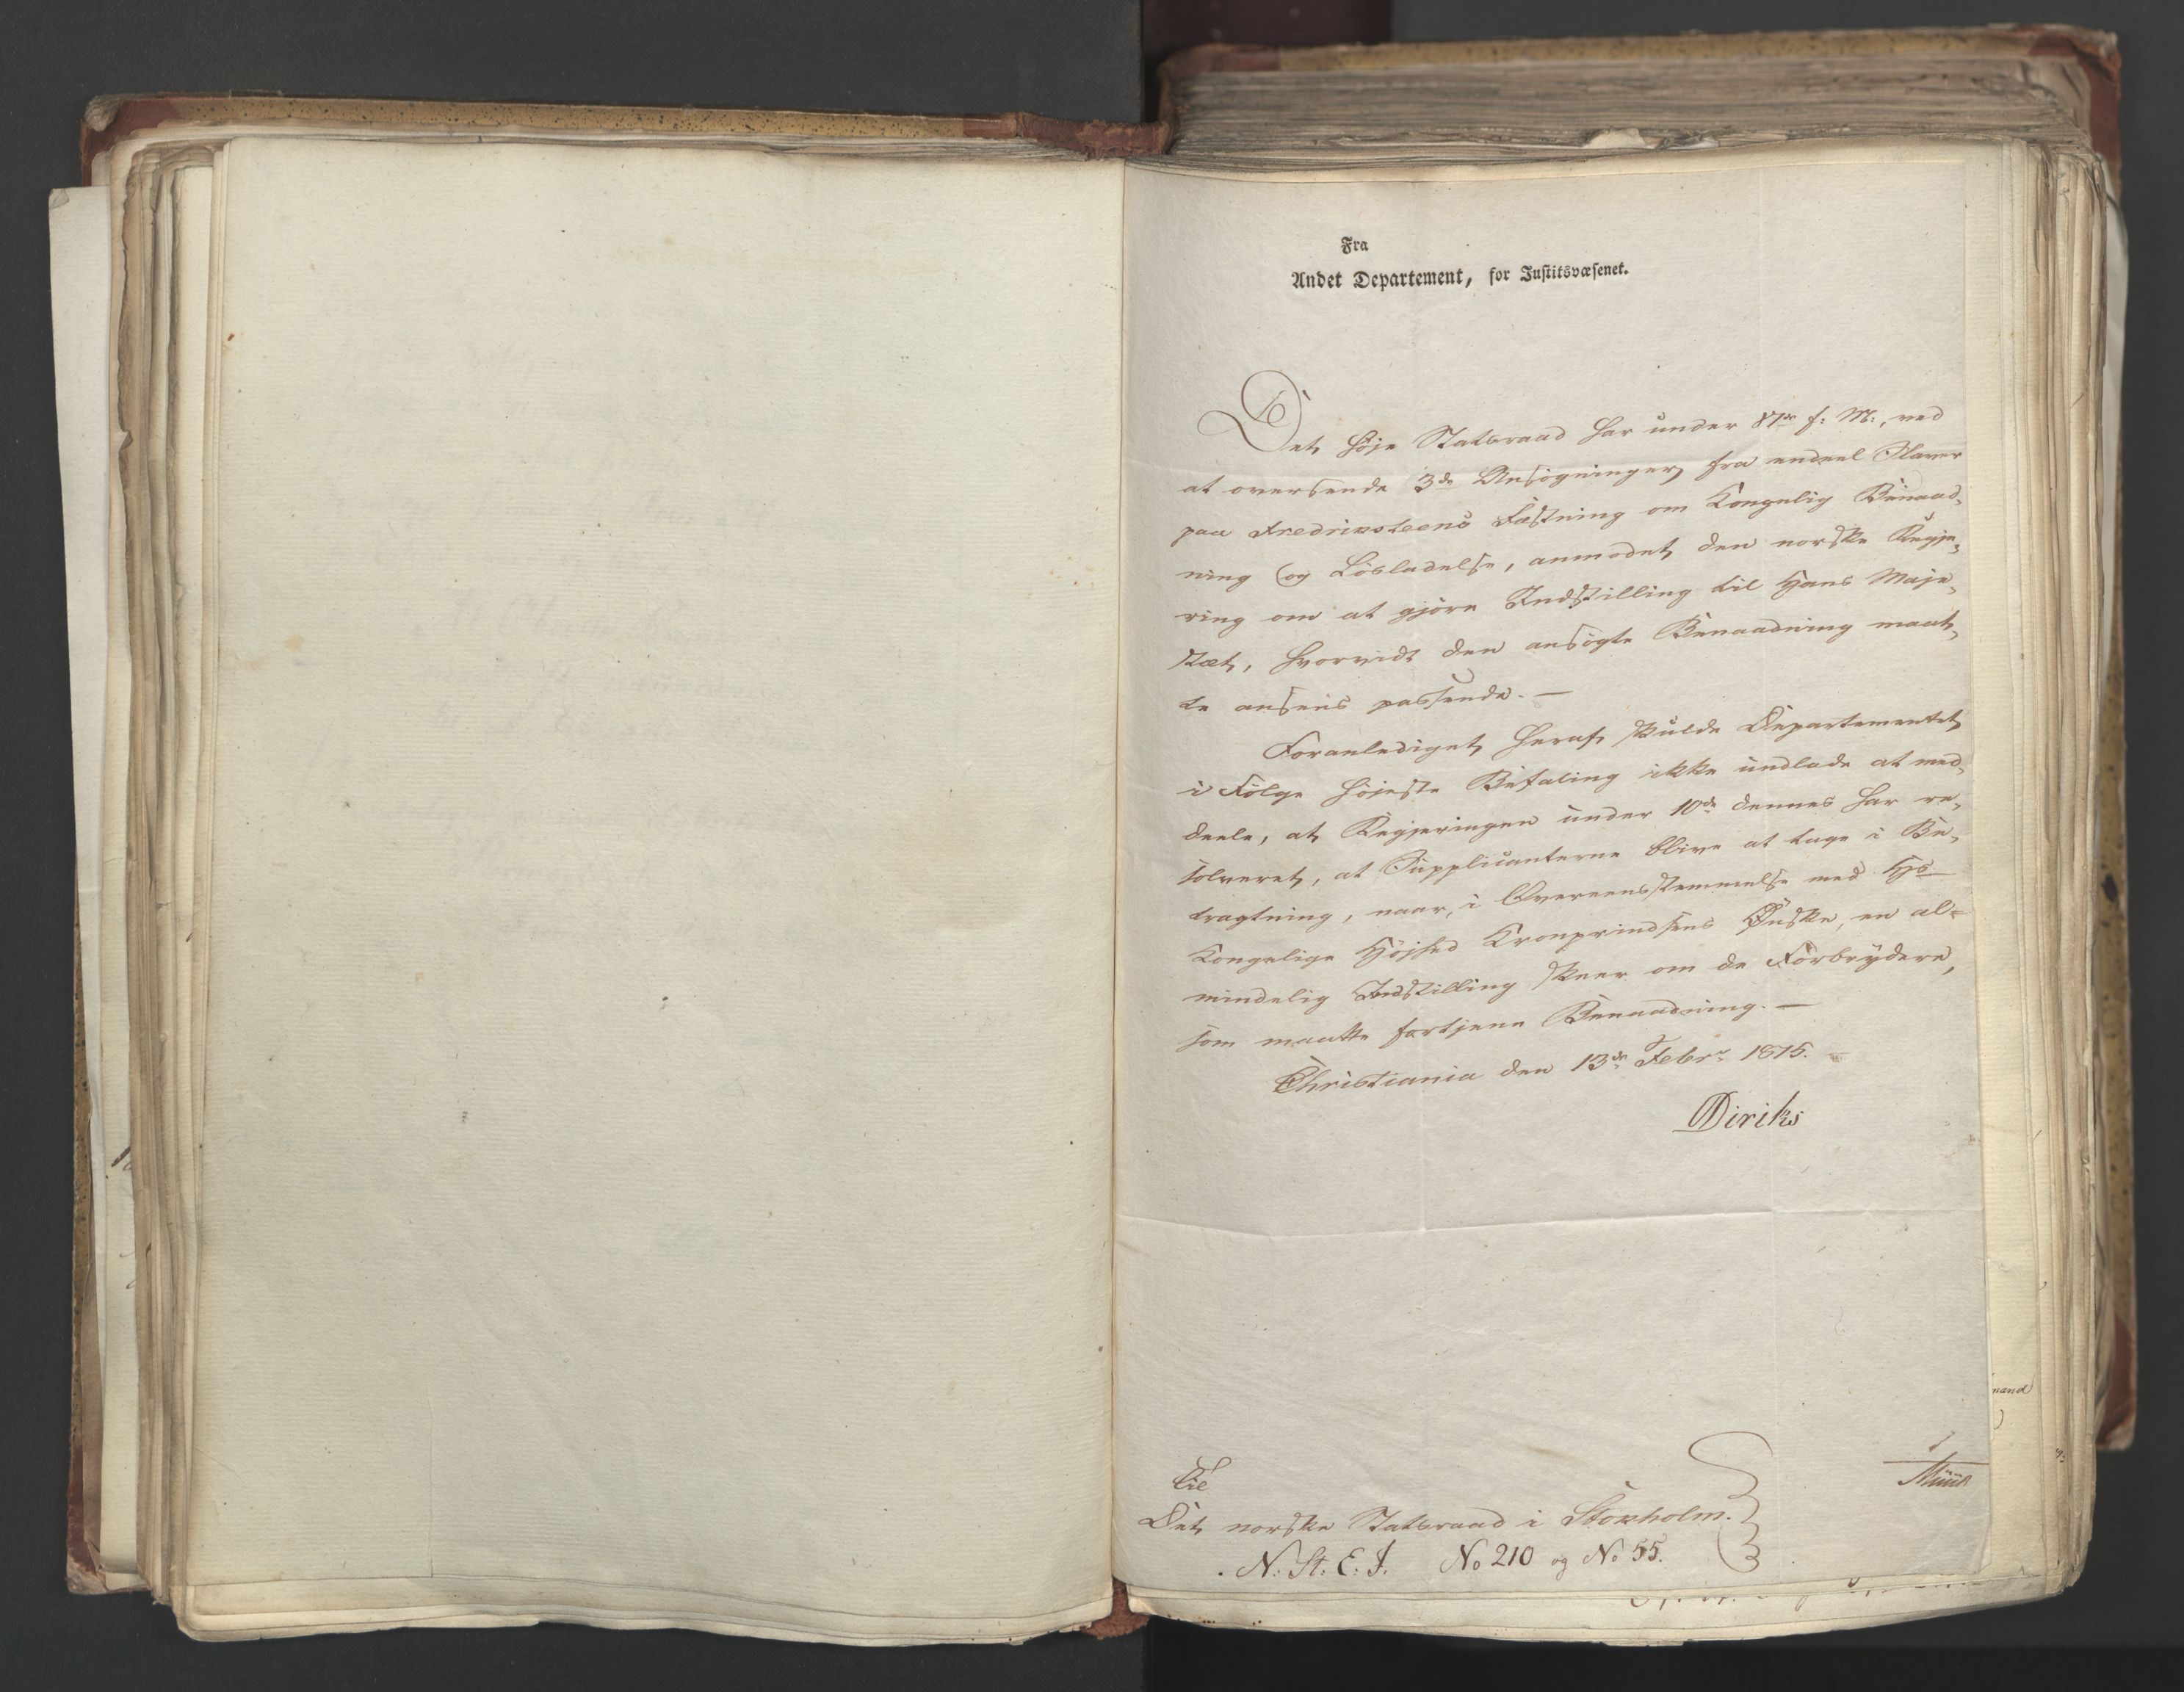 Fra
Andet Departement, for Justitsvæsenet.
Det høje Statsraad har under f: M:, ved
at oversende 3de Ansøgninger fra endeel Slaver
paa Fredriksteens Fæstning om Kongelig Benaad-
ning og Løsladelse, anmodet den norske Regje-
ring om at gjöre Indstilling til Hans Maje-
stæt, hvorvidt den ansögte Benaadning maat-
te ansees passende. —
Foranlediget heraf skulde Departementet
i Fölge höjeste Befaling ikke undlade at med-
deele, at Regjeringen under 10de dennes har re-
solveret, at Supplicanterne blive at tage i Be-
tragtning, naar, i Overeensstemmelse med Hs
Kongelige Højhed Kronprindsens Ønske, en al-
mindelig Indstilling skeer om de Forbrydere,
som maatte fortjene Benaadning. —
Christiania den 13de Febr. 1815.
Diriks
Til
Det norske Statsraad i Stokholm.
N: St: E: J. No 210 og No 55.